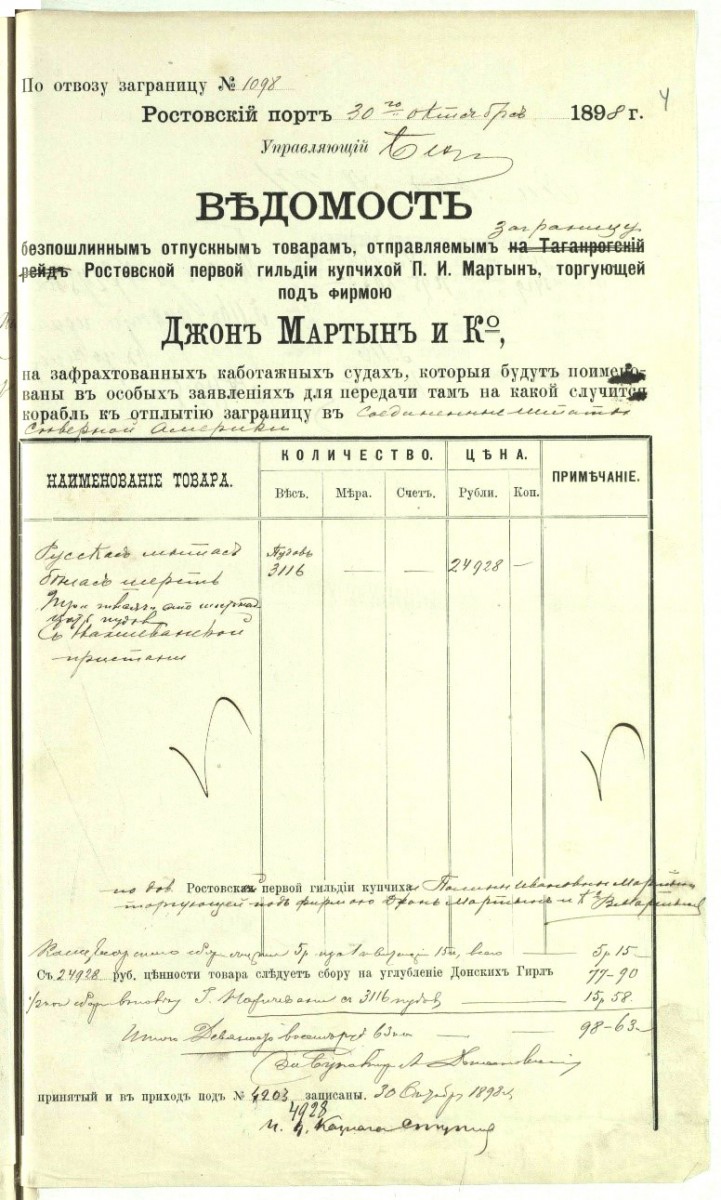 4
По отвозу заграницу № 1098
Ростовскій портъ 30го октября 1898 г.
Управляющій
ВѢДОМОСТЬ
заграницу
безпошлиннымъ отпускнымъ товарамъ, отправляемымъ на Таганрогскій
рейдъ Ростовской первой гильдіи купчихой П. И. Мартынъ, торгующей
подъ фирмою
Джонъ Мартынъ и Ко,
на зафрахтованныхъ каботажныхъ судахъ, которыя будутъ поимено-
ваны въ особыхъ заявленіяхъ для передачи тамъ на какой случится
корабль къ отплытію заграницу въ Соединенные штаты
Сѣверной Америки
НАИМЕНОВАНІЕ ТОВАРА. КОЛИЧЕСТВО. ЦѢНА. ПРИМѢЧАНІЕ.
Вѣсъ. Мѣра. Счетъ. Рубли. Коп.
Русская мытая Пудовъ
бѣлая шерсть 3116 — — 24928 —
Три тысячи сто шестнад
цать пудов
Съ Нахичеванской
пристани
по дов. Ростовской первой гильдіи купчихи Полины Ивановны Мартынъ
торгующей подъ фирмою Джонъ Мартынъ и Ко В. Мартынъ
сбора 5 р. 15 к, всего — 5 р 15 —
Съ 24928 руб. цѣнности товара слѣдуетъ сбору на углубленіе Донскихъ Гирлъ 77-90
сбора въ пользу Г. Нахичевани с 3116 пудов 15 р 58.
Итого Девяносто восемь руб 63 коп — — 98-63
принятый и въ приходъ подъ № 4203 записаны. 30 Октября 1898 г.
4928